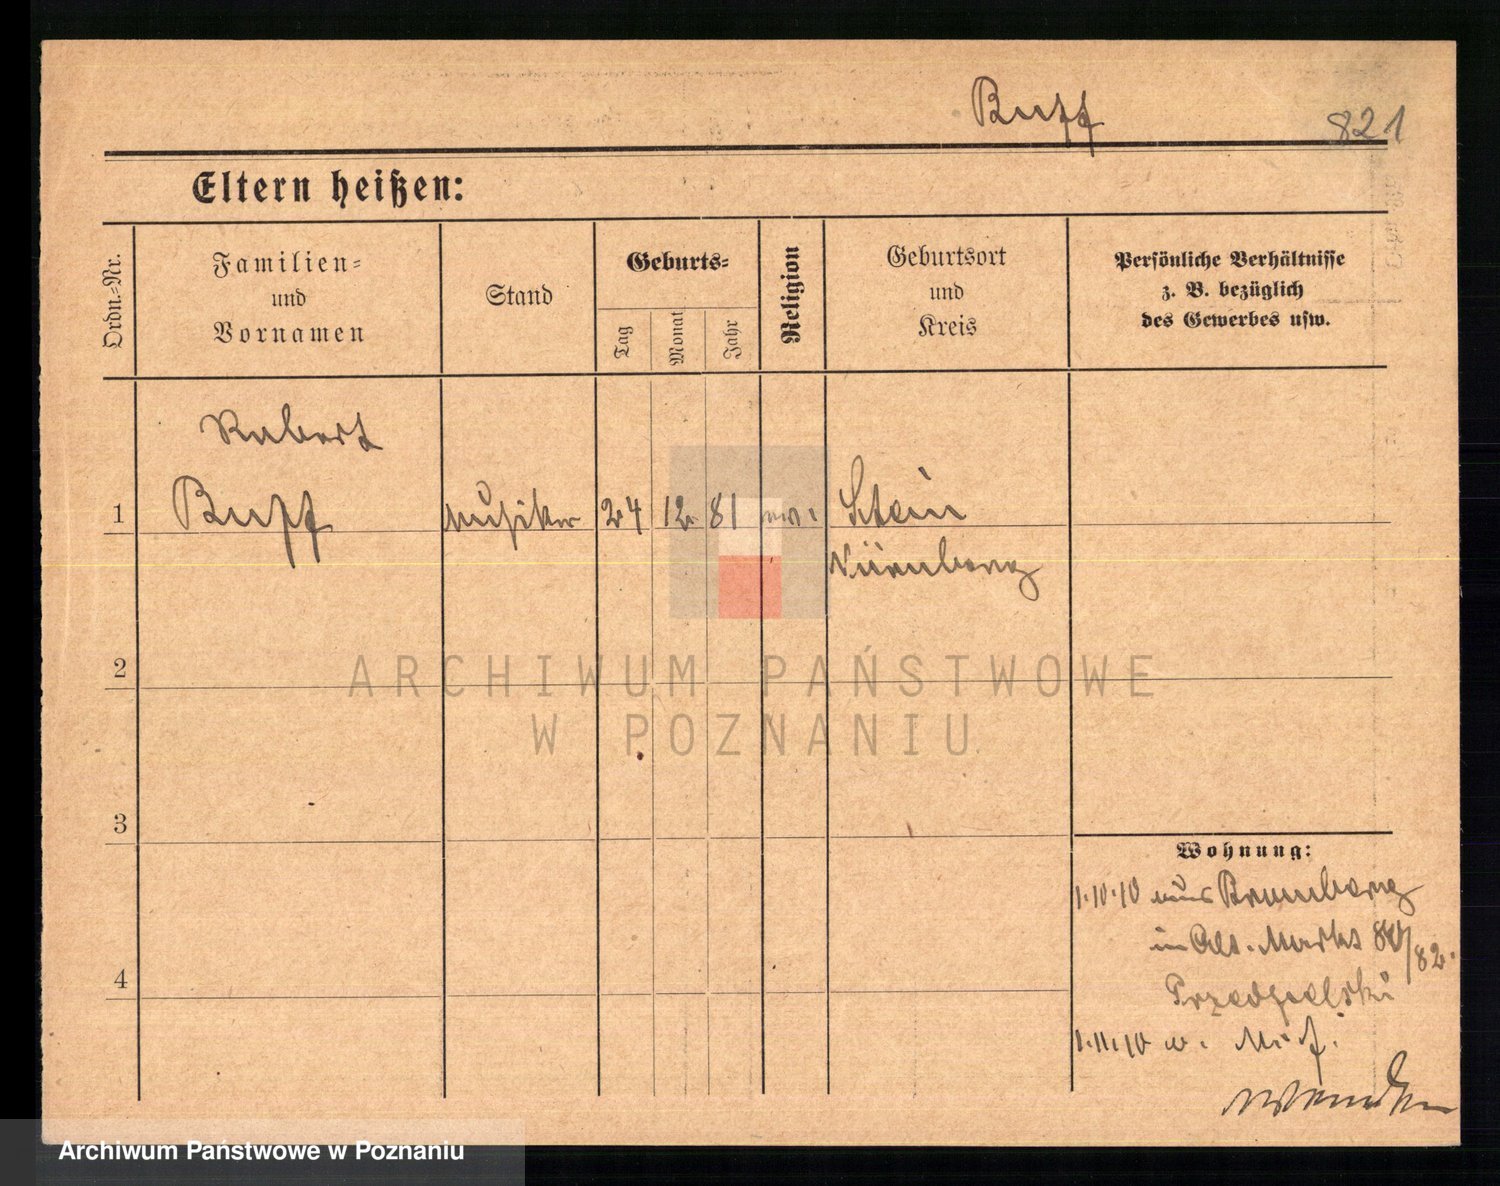 Buff
821
Eltern heißen:
Ordn.-Nr.
Familien-
und
Vornamen
Stand
Geburts-
Tag
Monat
Jahr
Religion
Geburtsort
und
Kreis
Persönliche Verhältnisse
z. B. bezüglich
des Gewerbes usw.
Robert
1 Buff Musiker 24 12 81 Stein
Nürnberg
2
ARCHIWUM PAŃSTWOWE
W POZNANIU
3
Wohnung:
1.10.10 aus Bromberg
in Alt. Markt /82.
4
1.11.10 n.
wenden
Archiwum Państwowe w Poznaniu